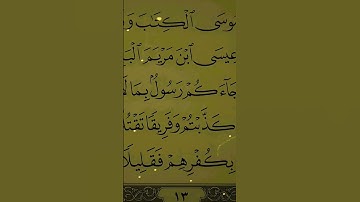 مُوسَى ٱلْكِتَٰبَ وَ
عِيسَى ٱبْنَ مَرْيَمَ ٱلْبَ
جَآءَكُمْ رَسُولٌۢ بِمَا لَا
كَذَّبْتُمْ وَفَرِيقًا تَقْتُ
بِكُفْرِهِمْ فَقَلِيلًا
١٣